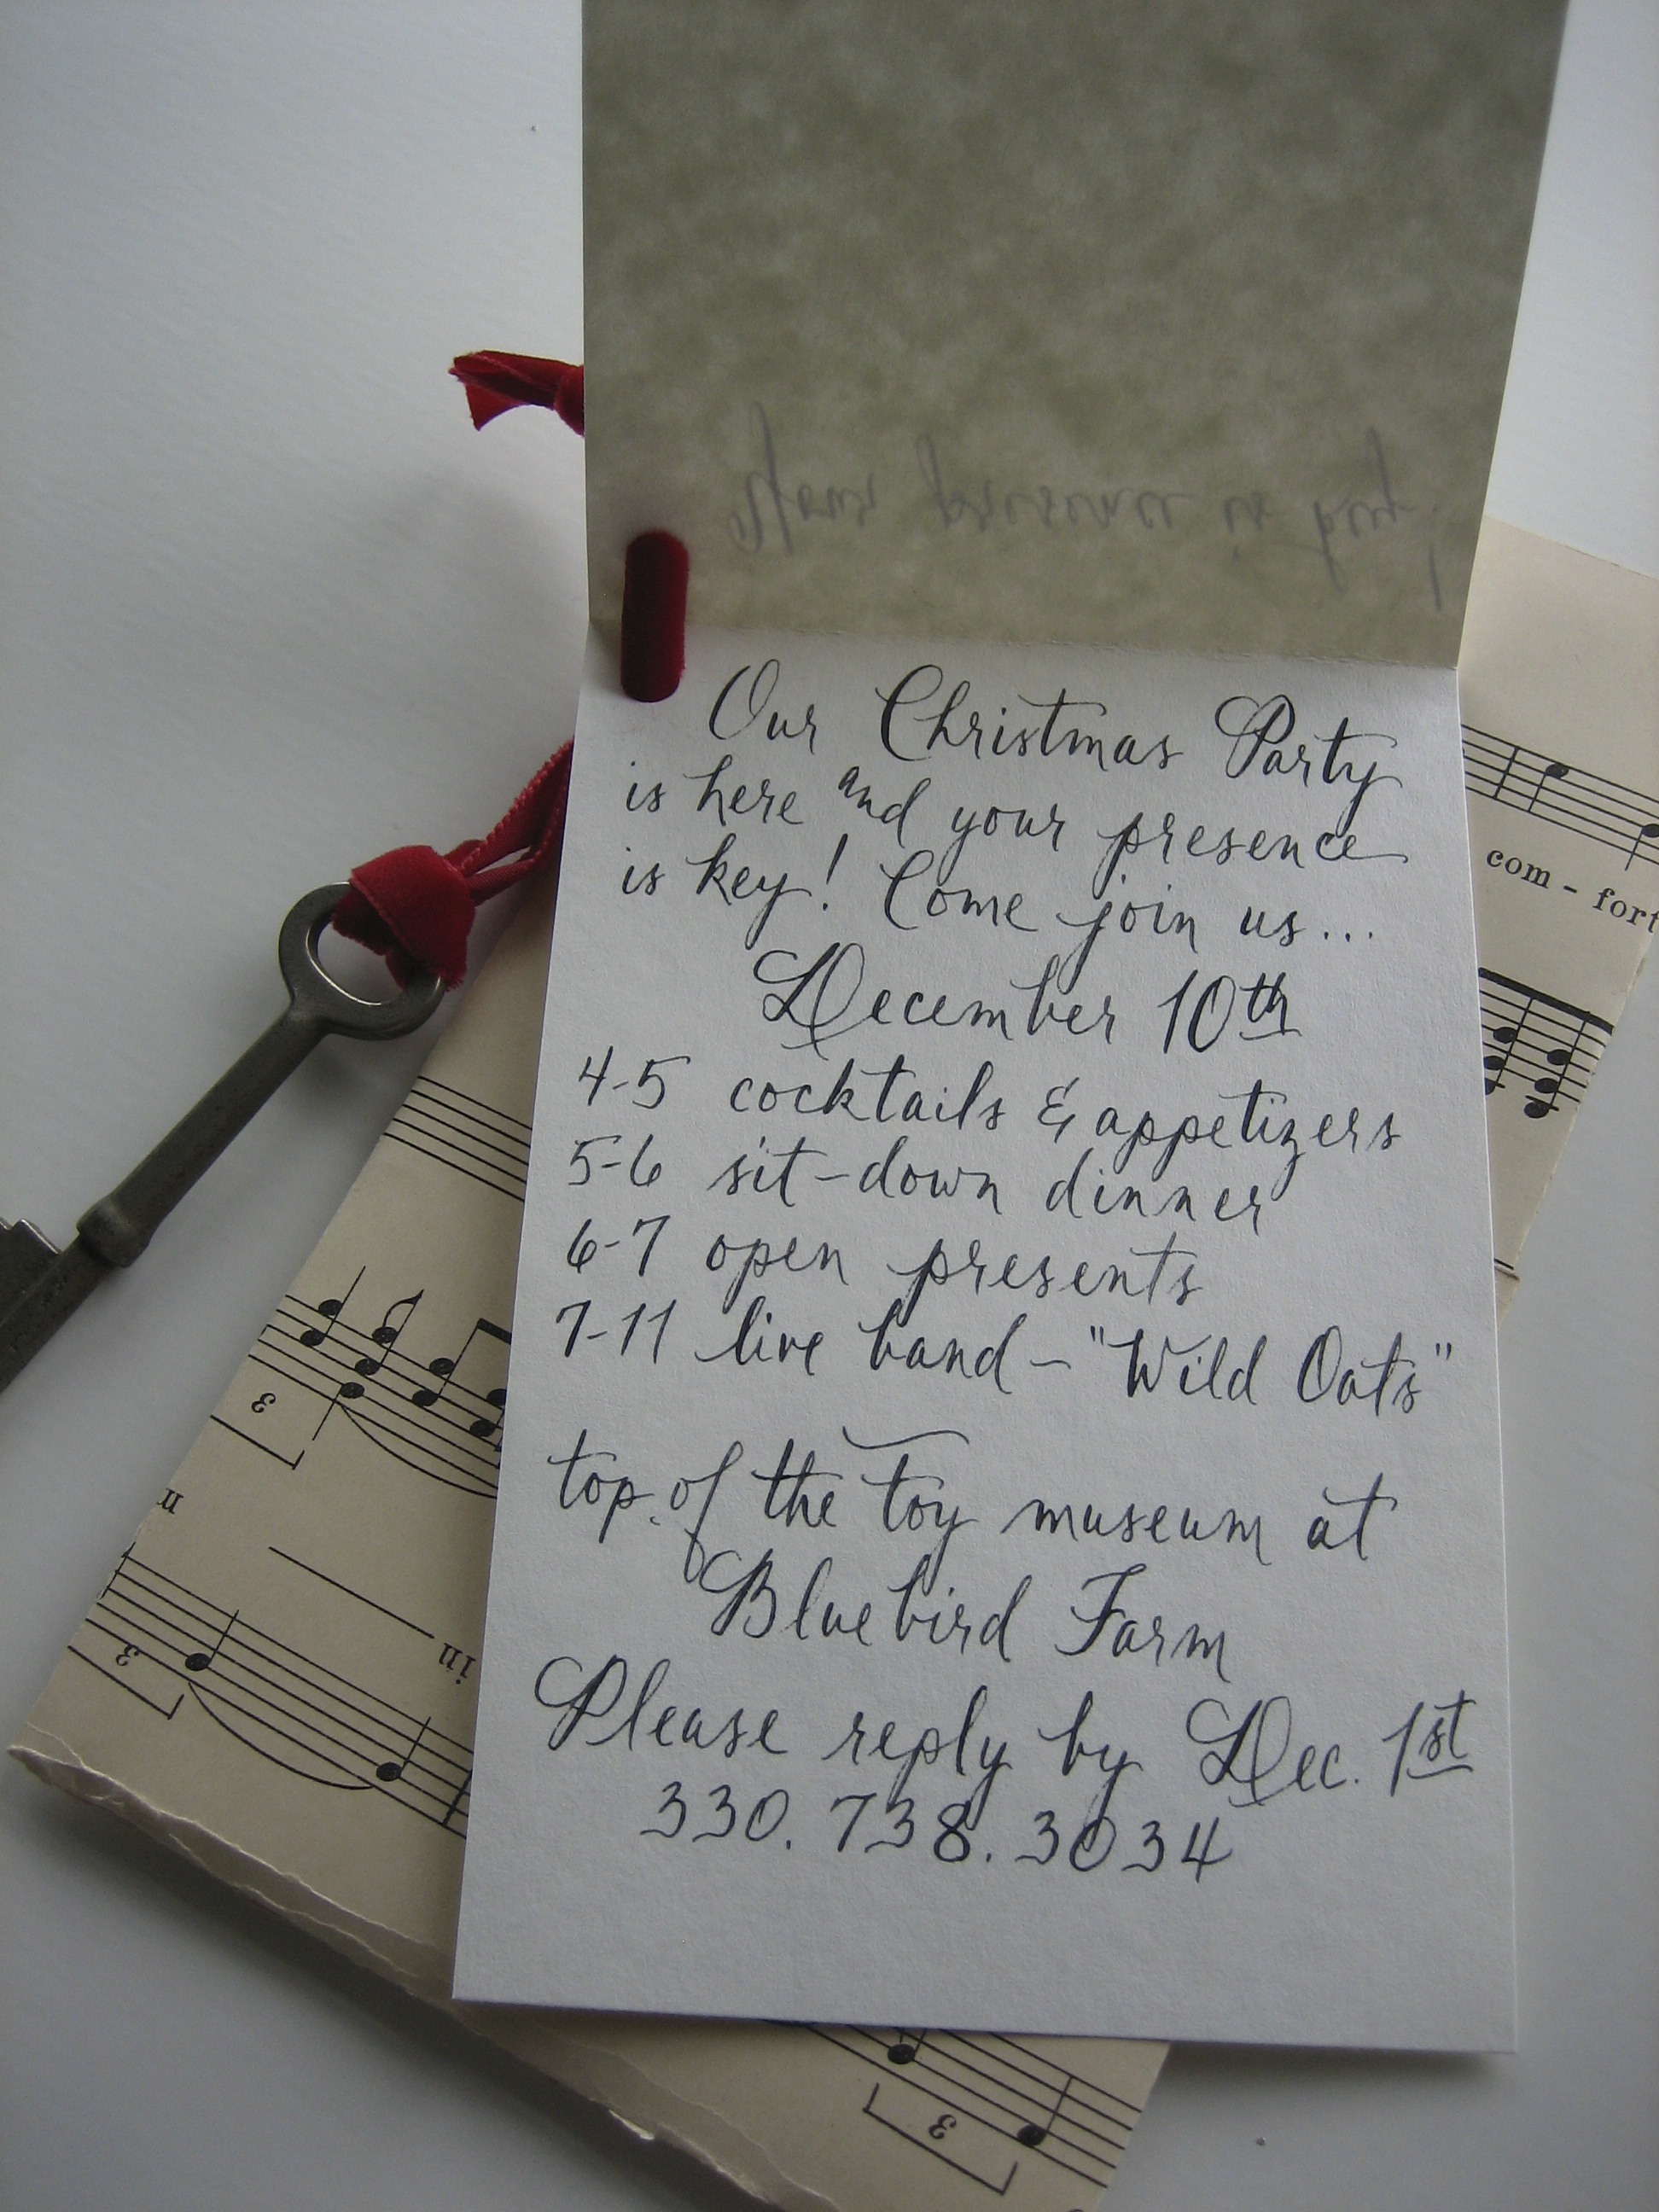 Your presence is key!
Our Christmas Party
is here and your presence
is key! Come join us...
December 10th
4-5 cocktails & appetizers
5-6 sit-down dinner
6-7 open presents
7-11 live band - "Wild Oats"
top of the toy museum at
Bluebird Farm
Please reply by Dec. 1st
330.738.3034
com - fort
3
n
in
3
3